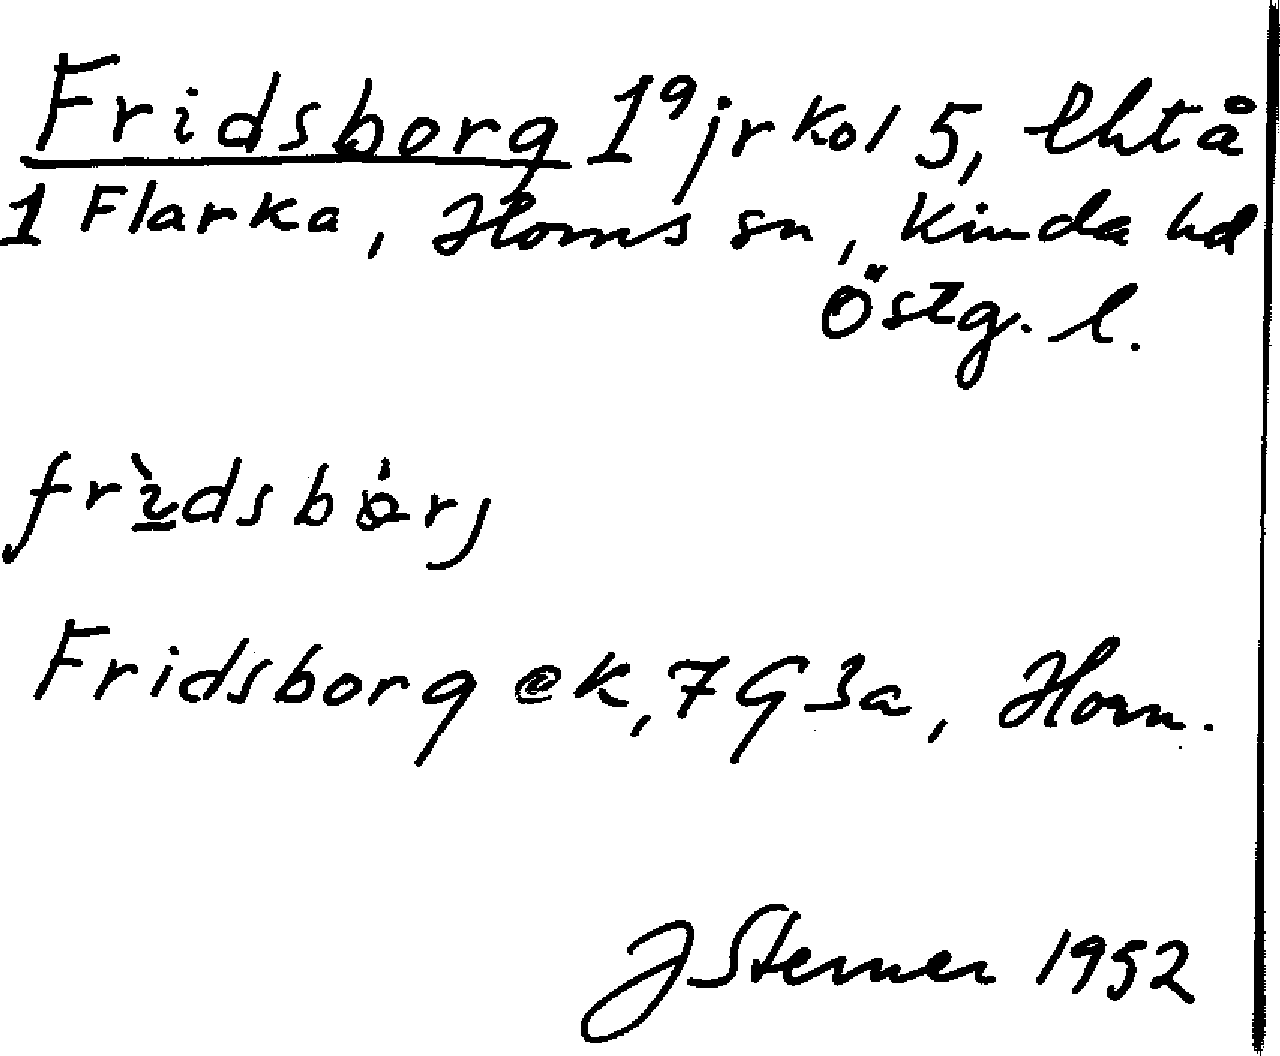 Fridsborg 1⁹ jr kol 5, lhtå
1 Flarka, Horns sn, Kinda hd
Östg. l.
frìdsbȯrj
Fridsborg ek, 7G3a, Horn.
J Sterner 1952